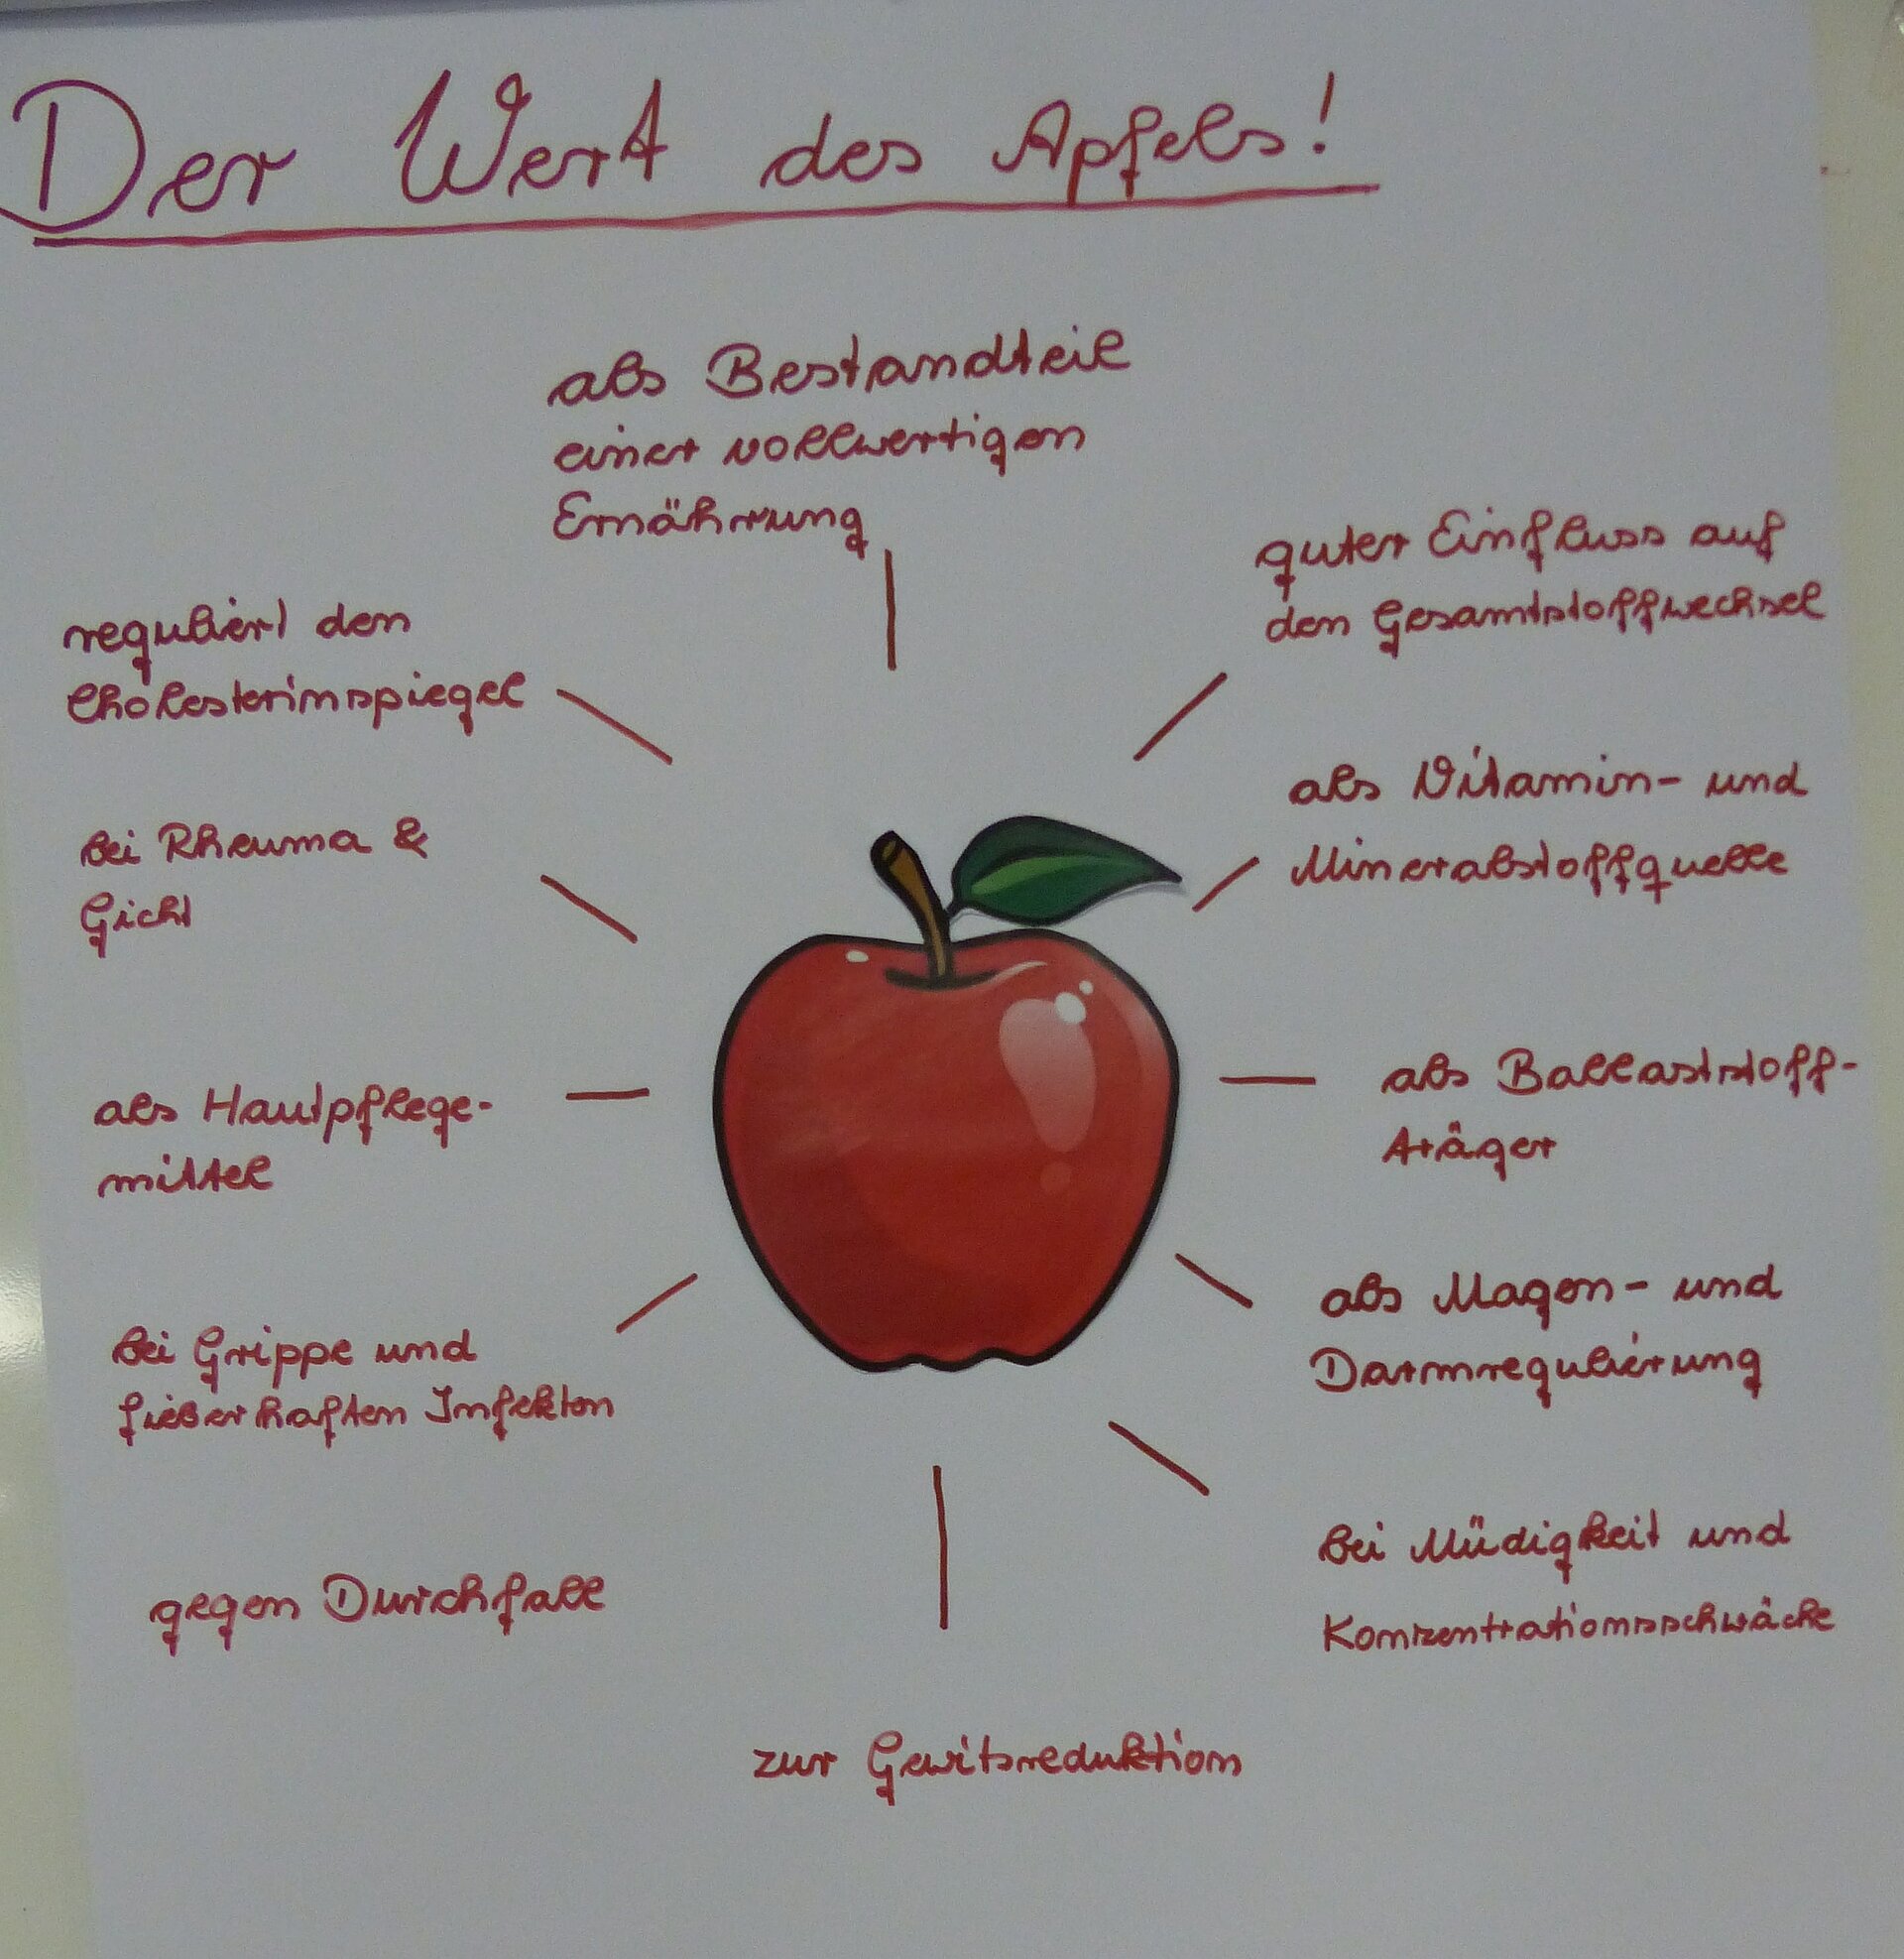 Der Wert des Apfels!
als Bestandteil
einer vollwertigen
Ernährung
guter Einfluss auf
den Gesamtstoffwechsel
als Vitamin- und
Mineralstoffquelle
als Ballaststoff-
träger
als Magen- und
Darmregulierung
bei Müdigkeit und
Konzentrationsschwäche
zur Gewitsreduktion
gegen Durchfall
bei Grippe und
fieberhaften Infekten
als Hautpflege-
mittel
bei Rheuma &
Gicht
reguliert den
Cholesterinspiegel